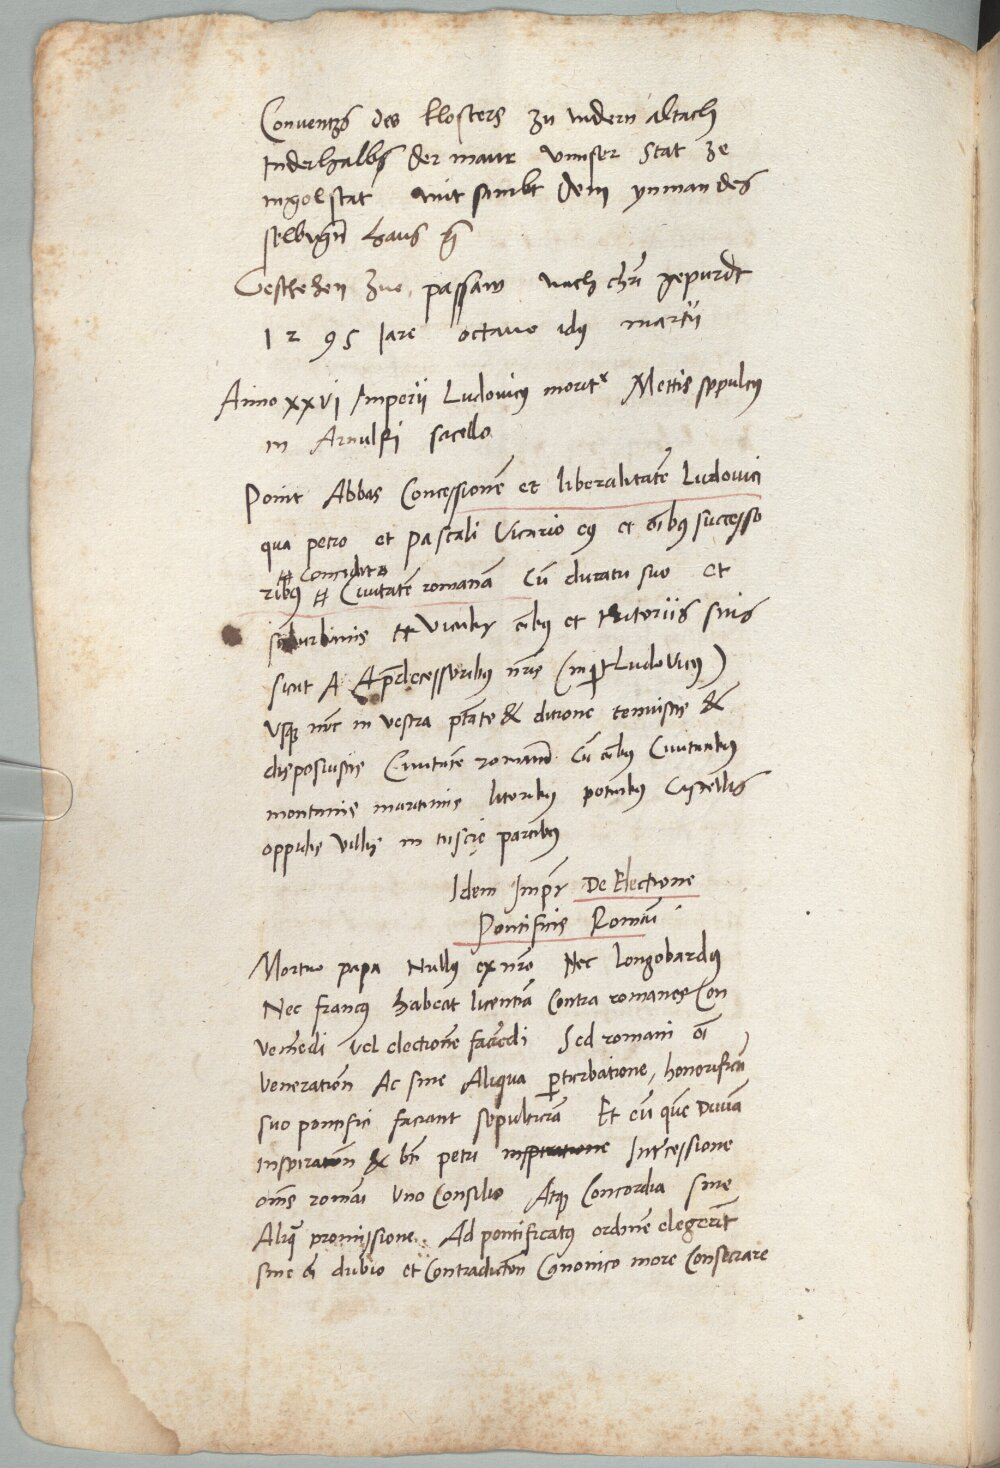 Conventzs des klosters zu nidern altach
Inderhalbs der maur vnnser stat ze
ingolstat mit sambt dem ynman des
selbigñ haus
Geschehen zue passaw nach chri gepurdt
1295 Jare octauo idus martii
Anno xxvi Imperii Ludovicus morit^r Mettis sepultus
in Arnulfi sacello
Ponit Abbas Concessionē et liberalitatē Ludouici
qua petro et pascali Vicario eius et oībus successo
# Concedit
ribus # Ciuitatē romanā Cū ducatu suo et
suburbanis et Viculis oībus et t̄ritoriis suis
sicut A p̄decessoribus nr̄is (inq̄t Ludovicus)
vsq̄ nūc in vestra p̄tate & ditione tenuistis &
disposuistis Ciuitatē romanā Cū oībus Ciuitatibus
montanis maritimis litoribus portubus Castellis
oppidis Villis in tuscie partibus
Idem Impr̄ De Electione
Pontificis Romāi
Mortuo papa Nullus ex nr̄o Nec longobardus
Nec francus habeat licentiā Contra romanos Con
veniēdi vel electionē faciēdi Sed romani oī
veneratiōn Ac sine Aliqua perturbatione, honorificā
suo pontifici faciant sepulturā Et eū quē Diuiā
inspiratiōn & bti petri inspiratione Intercessione
om̄s romāi vno Consilio Atq̄ Concordia sine
Aliq̄ promissione. Ad pontificatus ordinē elegerīt
sine oī dubio et Contradictōn Canonico more Consecrare